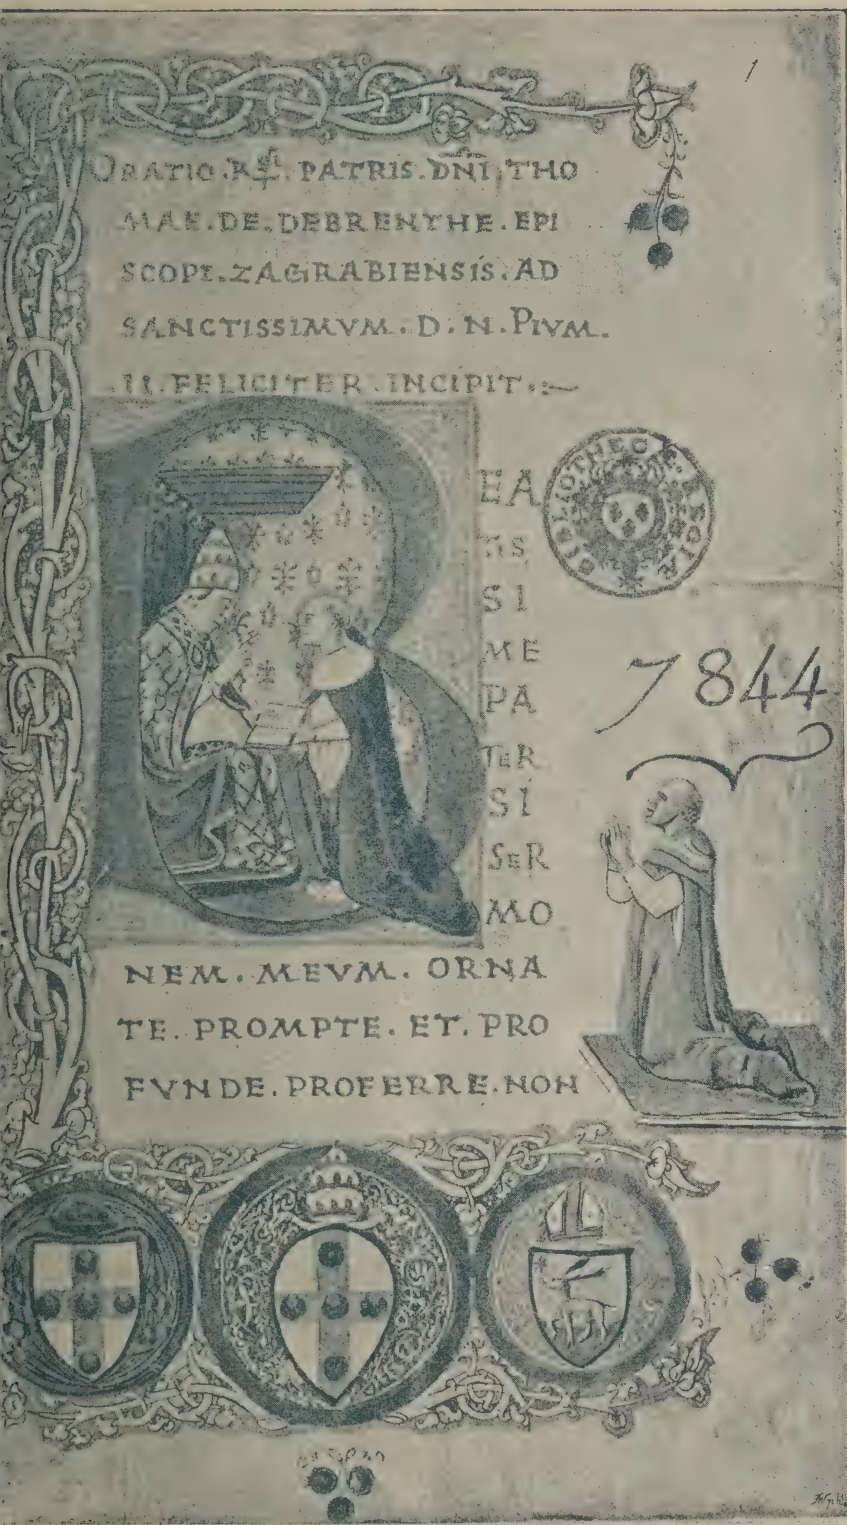 1
ORATIO. PATRIS. DNI. THO
MAE. DE. DEBRENTHE. EPI
SCOPI. ZAGRABIENSIS. AD
SANCTISSIMVM. D. N. PIVM.
II. FELICITER. INCIPIT.
B EA
TIS
SI
ME
PA
TER
SI
SER
MO
NEM. MEVM. ORNA
TE. PROMPTE. ET. PRO
FVNDE. PROFERRE. NON
BIBLIOTHECÆ REGIÆ
7844